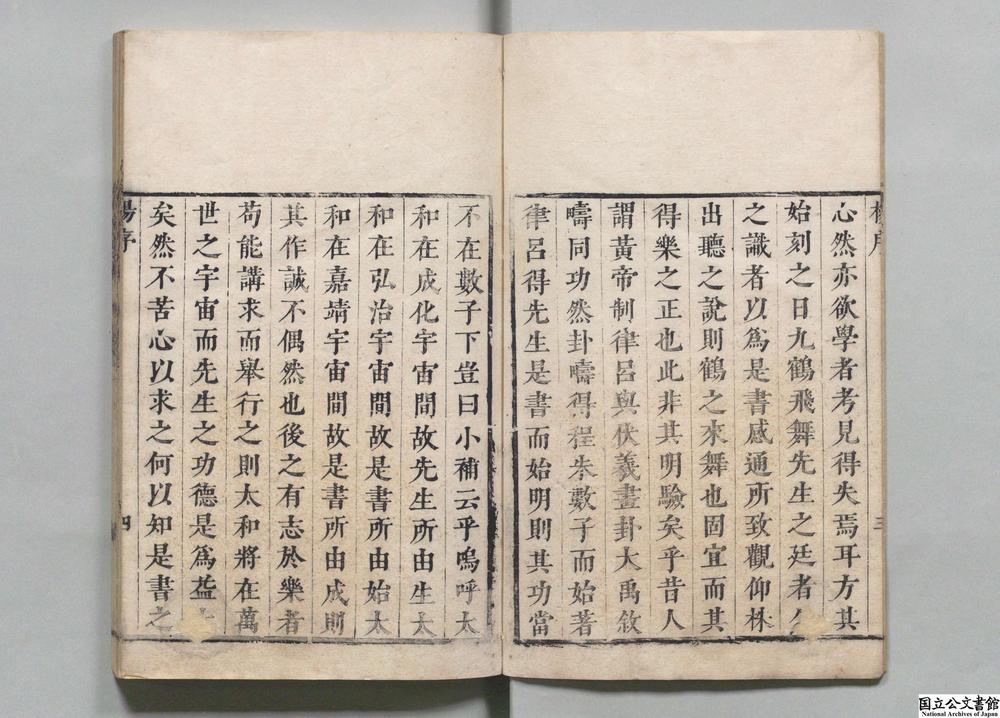 心然亦欲學者考見得失焉耳方其
始刻之日九鶴飛舞先生之廷者
之識者以爲是書感通所致觀仰秣
出聽之說則鶴之來舞也固宜而其
得樂之正也此非其明驗矣乎昔人
謂黃帝制律呂與伏羲畫卦大禹敘
疇同功然卦疇得程朱數子而始著
律呂得先生是書而始明則其功當
不在數子下豈曰小補云乎嗚呼太
和在成化宇宙間故先生所由生太
和在弘治宇宙間故是書所由始太
和在嘉靖宇宙間故是書所由成則
其作誠不偶然也後之有志於樂者
苟能講求而舉行之則太和將在萬
世之宇宙而先生之功德是爲益
矣然不苦心以求之何以知是書之
楊序 四
国立公文書館
National Archives of Japan